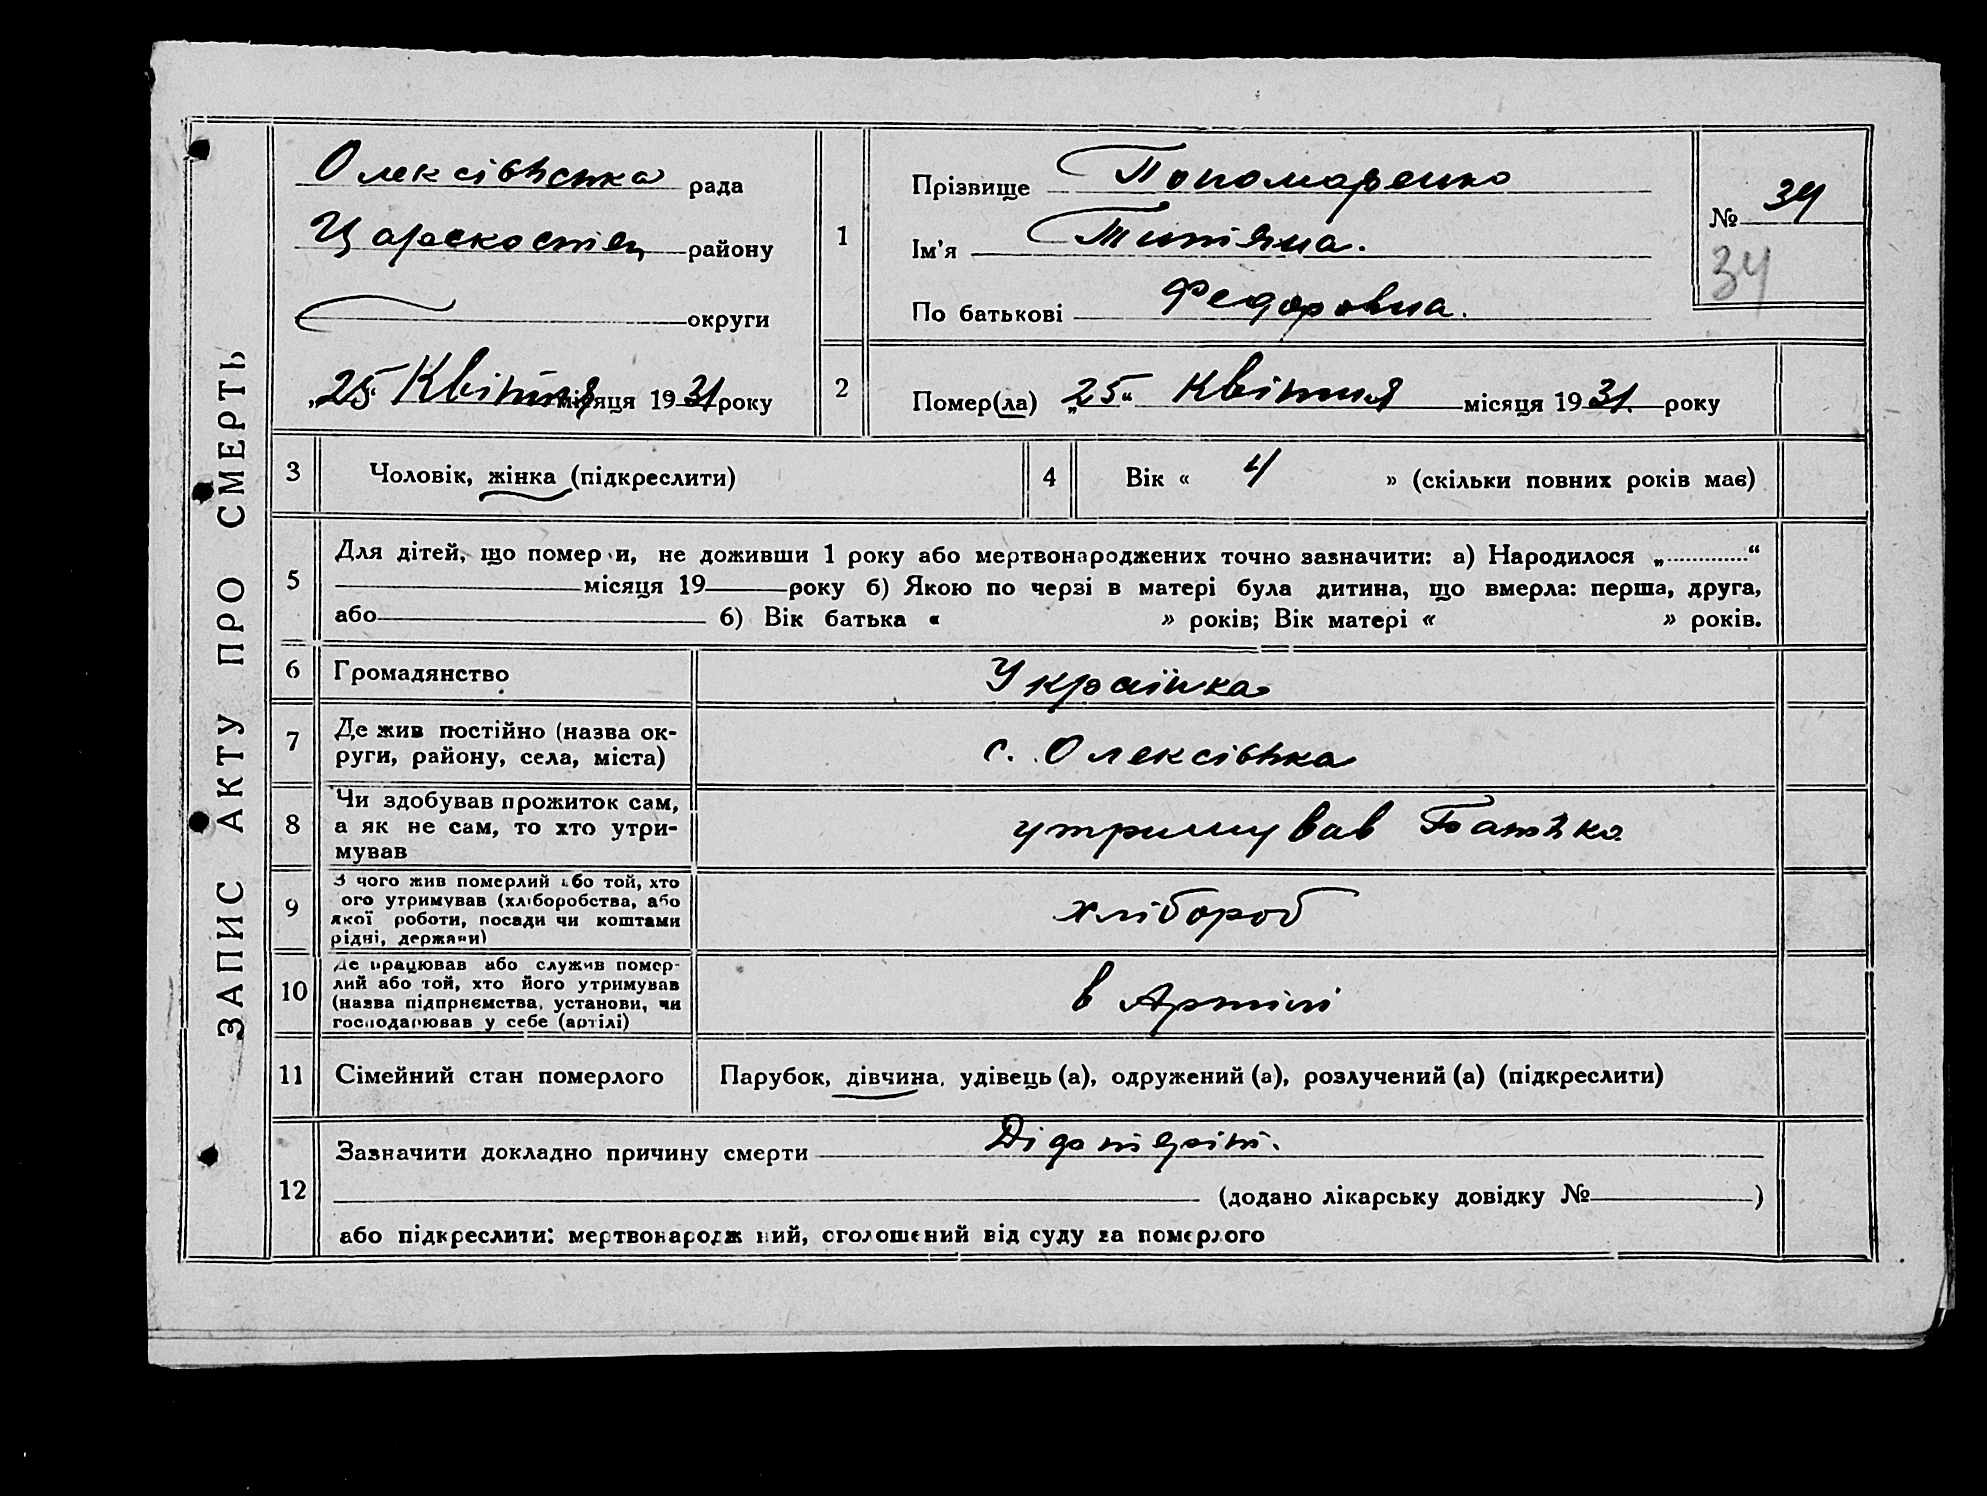 ЗАПИС АКТУ ПРО СМЕРТЬ
Олексівська рада
району
округи
„25“ Квітня місяця 1931 року
1
Прізвище Пономаренко
Ім'я Титяна.
По батькові Федоровна.
№ 34
34
2
Помер(ла) „25“ Квітня місяця 1931. року
3
Чоловік, жінка (підкреслити)
4
Вік « 4 » (скільки повних років має)
5
Для дітей, що померли, не доживши 1 року або мертвонароджених точно зазначити: а) Народилося „ “
місяця 19 року б) Якою по черзі в матері була дитина, що вмерла: перша, друга,
або б) Вік батька « » років; Вік матері « » років.
6
Громадянство
Українка
7
Де жив постійно (назва ок-
руги, району, села, міста)
с. Олексівка
8
Чи здобував прожиток сам,
а як не сам, то хто утри-
мував
утримував Батька
9
З чого жив померлий або той, хто
ого утримував (хліборобства, або
якої роботи, посади чи коштами
рідні, держави)
хлібороб
10
Де працював або служив помер-
лий або той, хто його утримував
(назва підприємства, установи, чи
господарював у себе (артілі)
в Артілі
11
Сімейний стан померлого
Парубок, дівчина, удівець (а), одружений (а), розлучений (а) (підкреслити)
12
Зазначити докладно причину смерти
(додано лікарську довідку № )
або підкреслити: мертвонародж ний, оголошений від суду за померлого